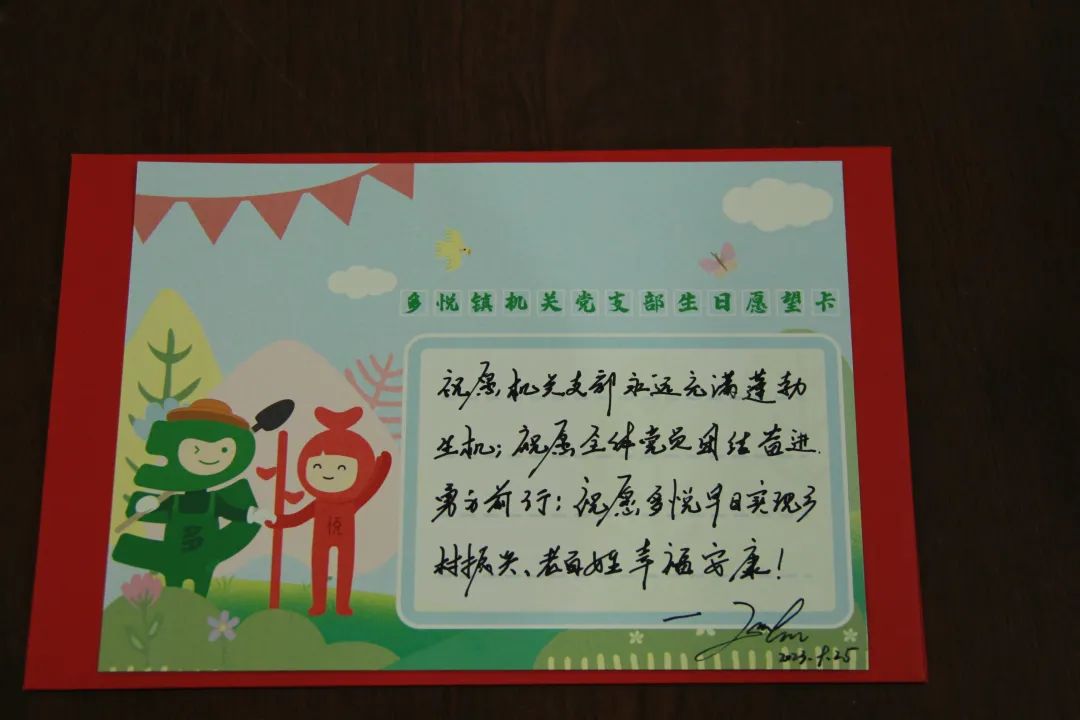 多悦镇机关党支部生日愿望卡
祝愿机关支部永远充满蓬勃
生机；祝愿全体党员团结奋进
勇方前行：祝愿多悦早日实现乡
村振兴、老百姓幸福安康！
多
悦
2023.9.25